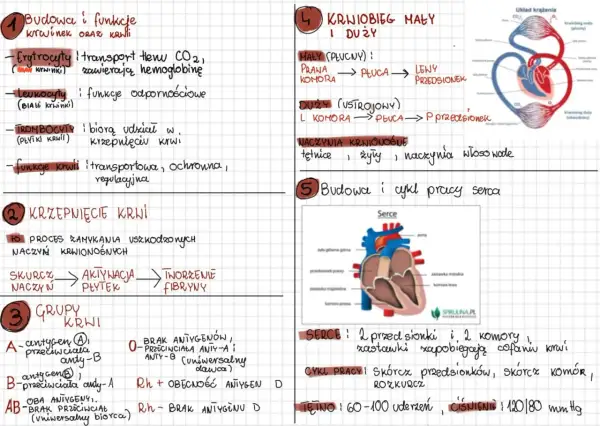 1 Budowa i funkcje
krwinek oraz krwi
- Erytrocyty : transport tlenu CO2,
(krwinki) zawierają hemoglobinę
- Leukocyty : funkcje odpornościowe
(BIAŁE krwinki)
- TROMBOCYTY : biorą udział w
(PŁYTKI KRWI) krzepnięciu krwi
- funkcje krwi : transportowa, ochronna,
regulacyjna
2 KRZEPNIĘCIE KRWI
to PROCES ZAMYKANIA USZKODZONYCH
NACZYŃ KRWIONOŚNYCH
SKURCZ NACZYŃ → AKTYWACJA PŁYTEK → TWORZENIE FIBRYNY
3 GRUPY
KRWI
A - antygen A,
przeciwciała
anty-B
B - antygen B,
przeciwciała anty-A
AB - OBA ANTYGENY,
BRAK PRZECIWCIAŁ
(uniwersalny biorca)
O - BRAK ANTYGENÓW,
PRZECIWCIAŁA ANTY-A i
ANTY-B (uniwersalny
dawca)
Rh + OBECNOŚĆ ANTYGEN D
Rh - BRAK ANTYGENU D
4 KRWIOBIEG MAŁY
I DUŻY
MAŁY (PŁUCNY) :
PRAWA KOMORA → PŁUCA → LEWY PRZEDSIONEK
DUŻY (USTROJOWY)
L KOMORA → PŁUCA → P przedsionek
NACZYNIA KRWIONOŚNE
tętnice , żyły , naczynia włosowate
Układ krążenia
5 Budowa i cykl pracy serca
Serce
SPIRULINA.PL
SERCE : 2 przedsionki i 2 komory,
zastawki zapobiegają cofaniu krwi
CYKL PRACY : SKÓRCZ przedsionków, skorcz komór,
ROZKURCZ
TĘTNO : 60-100 uderzeń , CIŚNIENIE : 120/80 mmHg